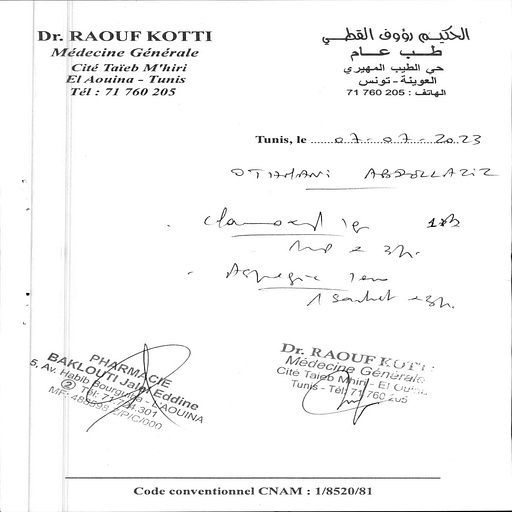 Dr. RAOUF KOTTI
Médecine Générale
Cité Taïeb M'hiri
El Aouina - Tunis
Tél : 71 760 205
الحكيم رؤوف القطي
طـب عـام
حي الطيب المهيري
العوينة - تونس
الهاتف : 205 760 71
Tunis, le 07-07-2023
OTHMANI ABDELLAZIZ
Clamoxyl 1g
Aspegic
1 sachet
PHARMACIE
BAKLOUTI Jalel Eddine
5, Av. Habib Bourguiba - L'AOUINA
Dr. RAOUF KOTTI
Médecine Générale
Cité Taïeb Mhiri - El Ouina
Tunis - Tél: 71 760 205
Code conventionnel CNAM : 1/8520/81